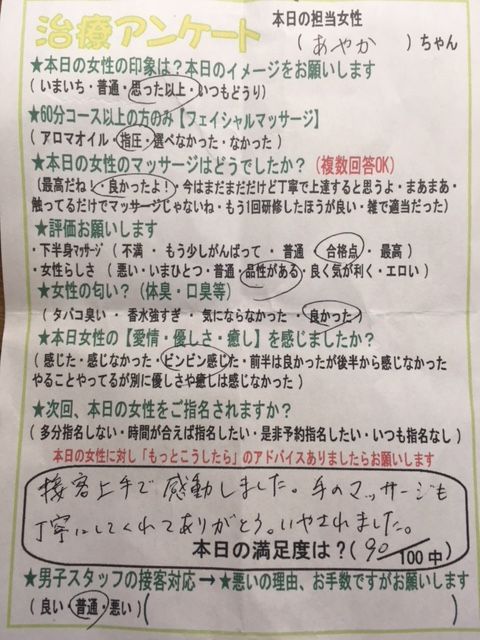 治療アンケート
本日の担当女性
( あやか )ちゃん
★本日の女性の印象は？本日のイメージをお願いします
( いまいち・普通・思った以上・いつもどうり)
★60分コース以上の方のみ【フェイシャルマッサージ】
( アロマオイル・指圧・選べなかった・なかった )
★本日の女性のマッサージはどうでしたか？(複数回答OK)
(最高だね！・良かったよ！・今はまだまだだけど丁寧で上達すると思うよ・まあまあ・
触ってるだけでマッサージじゃないね・もう1回研修したほうが良い・雑で適当だった)
★評価お願いします
・下半身マッサージ ( 不満 ・ もう少しがんばって ・ 普通 合格点 ・ 最高 )
・女性らしさ ( 悪い・いまひとつ・普通・品性がある・良く気が利く・エロい )
★女性の匂い？(体臭・口臭等)
( タバコ臭い ・ 香水強すぎ ・ 気にならなかった ・ 良かった )
★本日女性の【愛情・優しさ・癒し】を感じましたか？
( 感じた・感じなかった・ビンビン感じた・前半は良かったが後半から感じなかった
やることやってるが別に優しさや癒しは感じなかった )
★次回、本日の女性をご指名されますか？
( 多分指名しない・時間が合えば指名したい・是非予約指名したい・いつも指名なし )
本日の女性に対し「もっとこうしたら」のアドバイスありましたらお願いします
接客上手で感動しました。手のマッサージも
丁寧にしてくれてありがとう。いやされました。
本日の満足度は？( 90 / 100中)
★男子スタッフの接客対応→★悪いの理由、お手数ですがお願いします
( 良い・普通・悪い ) (